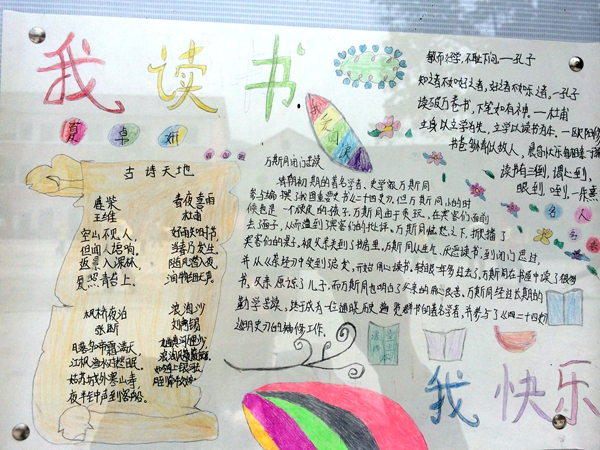 我读书
夏卓妍
我
古诗天地
鹿柴
王维
空山不见人，
但闻人语响。
返景入深林，
复照青苔上。
春夜喜雨
杜甫
好雨知时节
当春乃发生
随风潜入夜
润物细无声。
枫桥夜泊
张继
月落乌啼霜满天，
江枫渔火对愁眠。
姑苏城外寒山寺，
夜半钟声到客船。
浪淘沙
刘禹锡
万斯同闭门苦读
清朝初期的著名学者、史学家万斯同
参与编撰了我国重要史书《二十四史》。但万斯同小的时
候也是一个顽皮的孩子。万斯同由于贪玩，在宾客们面前
丢了面子，从而遭到了宾客们的批评。万斯同恼怒之下，掀翻了
宾客们的桌子，被父亲关到了书屋里。万斯同从生气、厌恶读书，到闭门思过，
并从《茶经》中受到启发，开始用心读书。转眼一年多过去了，万斯同在书屋中读了很多
书，父亲原谅了儿子，而万斯同也明白了父亲的良苦用心。万斯同经过长期的
勤学苦读，终于成为一位通晓历史遍览群书的著名学者，并参与了《二十四史》
之《明史》的编修工作。
敏而好学，不耻下问。—孔子
知之者不如好之者，好之者不如乐之者。—孔子
读破万卷书，下笔如有神。—杜甫
立身以立学为先，立学以读书为本。—欧阳修
读书有三到，谓心到，
眼到，口到。—朱熹
名人名言
我快乐